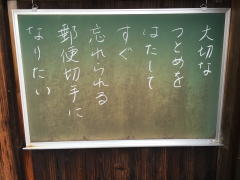 大切な
つとめを
はたして
すぐ
忘れられる
郵便切手に
なりたい